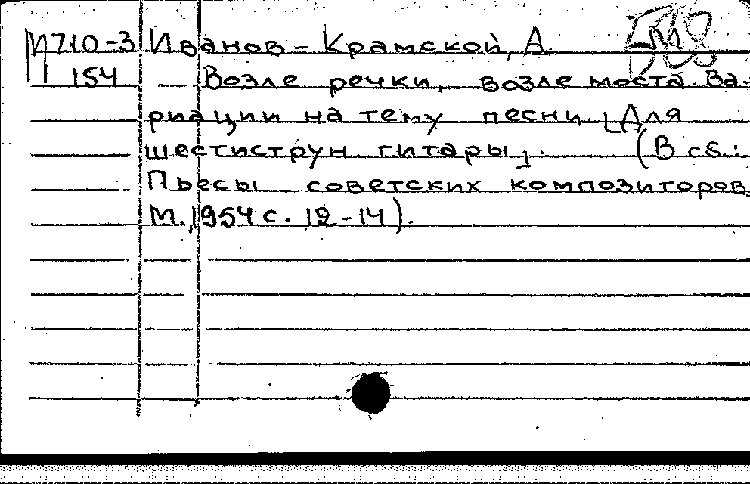 М710-3 Иванов-Крамской, А.
154 Возле речки, возле моста. Ва-
риации на тему песни [Для
шестиструн гитары]. (В сб.:
Пьесы советских композиторов.
М., 1954 с. 12-14).